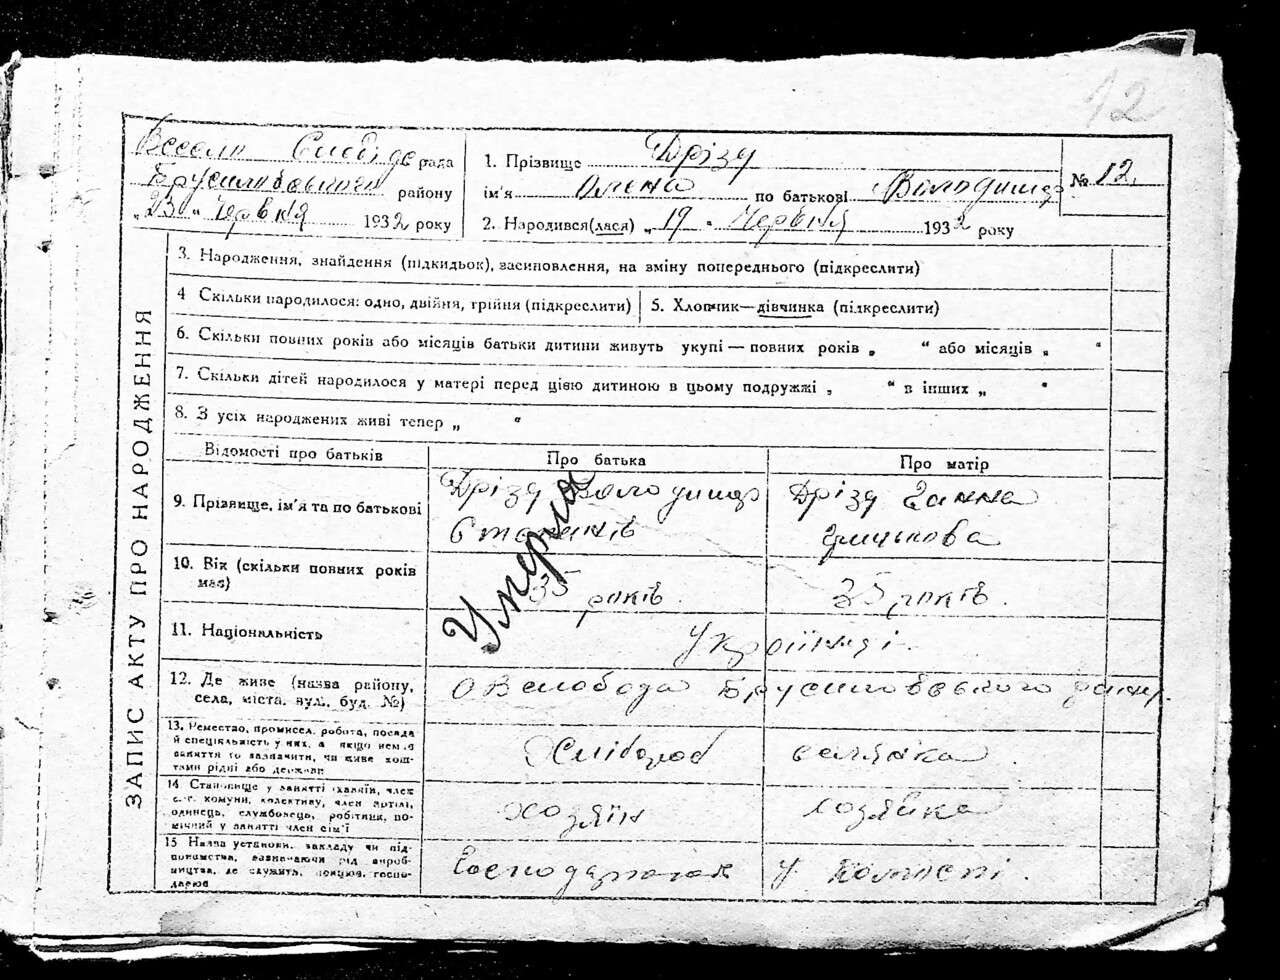 12
Весело Слобідс рада
Брусилівського району
„23“ Червня 1932 року
1. Прізвище Дрізд
ім'я Олена по батькові Володимир
2. Народився(лася) „19“ Червня 1932 року
№ 12.
ЗАПИС АКТУ ПРО НАРОДЖЕННЯ
3. Народження, знайдення (підкидьок), засиновлення, на зміну попереднього (підкреслити)
4 Скільки народилося: одно, двійня, трійня (підкреслити)
5. Хлопчик—дівчинка (підкреслити)
6. Скільки повних років або місяців батьки дитини живуть укупі — повних років „ “ або місяців „ “
7. Скільки дітей народилося у матері перед цією дитиною в цьому подружжі „ “ в інших „ “
8. З усіх народжених живі тепер „ “
Відомості про батьків
Про батька
Про матір
9. Прізвище, ім'я та по батькові
Дрізд Володимир
Степанів
Дрізд Ганна
Умерла
10. Вік (скільки повних років
має)
35 років
35 років.
11. Національність
Українці
12. Де живе (назва району,
села, міста, вул., буд. №)
слобода Брусилівського
13. Ремество, промисел, робота, посада
й спеціяльність у них, а якщо нема
заняття то зазначити, чи живе кош-
тами рідні або держави
Хлібороб
селянка
14 Становище у занятті (хазяїн, член
с.-г. комуни, колективу, член артілі,
одинець, службовець, робітник, по-
мічний у занятті член сім'ї
хозяїн
хозяйка
15 Назва установи, закладу чи під-
приємства, зазначаючи рід вироб-
ництва, де служить, працює, госпо-
дарює
у